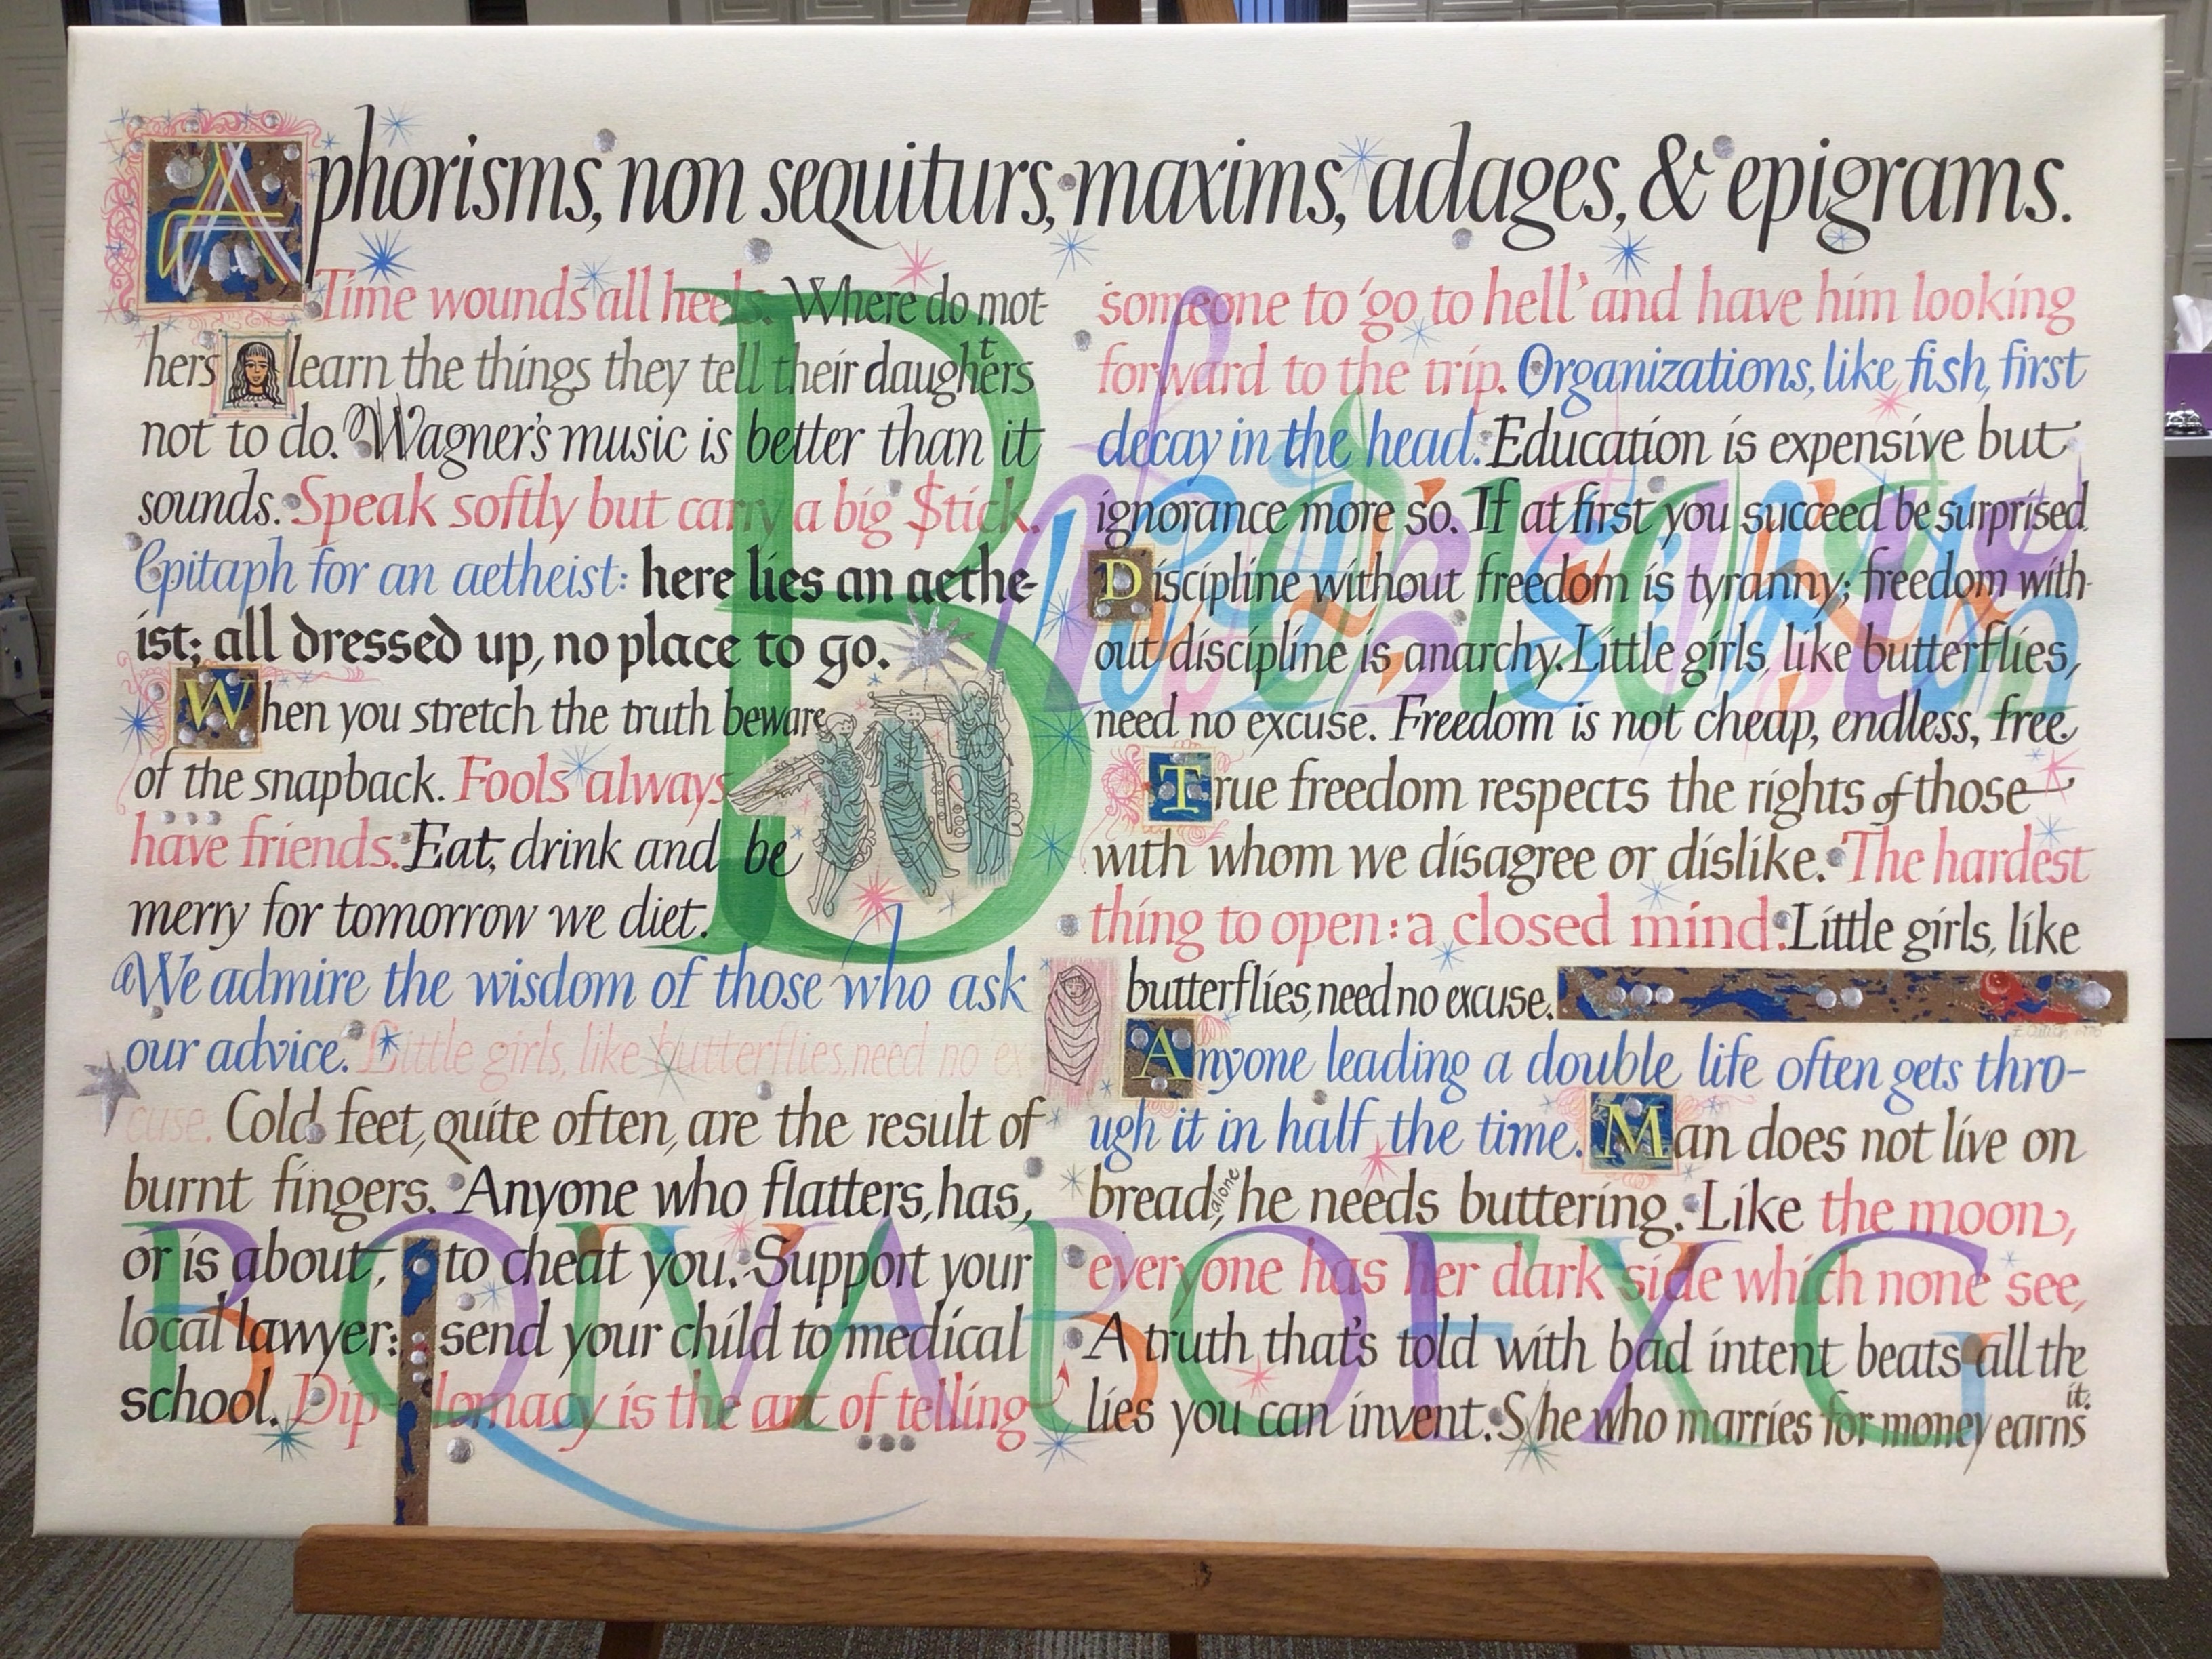 Aphorisms, non sequiturs, maxims, adages, & epigrams.
Time wounds all heels. Where do mot-
hers learn the things they tell their daughters
not to do. Wagner's music is better than it
sounds. Speak softly but carry a big $tick.
Epitaph for an aetheist: here lies an aethe-
ist; all dressed up, no place to go.
When you stretch the truth beware
of the snapback. Fools always
have friends. Eat, drink and be
merry for tomorrow we diet.
We admire the wisdom of those who ask
our advice. Little girls, like butterflies, need no ex
cuse. Cold feet, quite often, are the result of
burnt fingers. Anyone who flatters, has,
or is about, to cheat you. Support your
local lawyer: send your child to medical
school. Dip-lomacy is the art of telling
someone to 'go to hell' and have him looking
forward to the trip. Organizations, like fish, first
decay in the head. Education is expensive but
ignorance more so. If at first you succeed be surprised.
Discipline without freedom is tyranny; freedom with-
out discipline is anarchy. Little girls, like butterflies,
need no excuse. Freedom is not cheap, endless, free.
True freedom respects the rights of those
with whom we disagree or dislike. The hardest
thing to open: a closed mind. Little girls, like
butterflies, need no excuse.
Anyone leading a double life often gets thro-
ugh it in half the time. Man does not live on
bread, alone, he needs buttering. Like the moon,
everyone has her dark side which none see,
A truth that's told with bad intent beats all the
lies you can invent. S/he who marries for money earns
it.
B